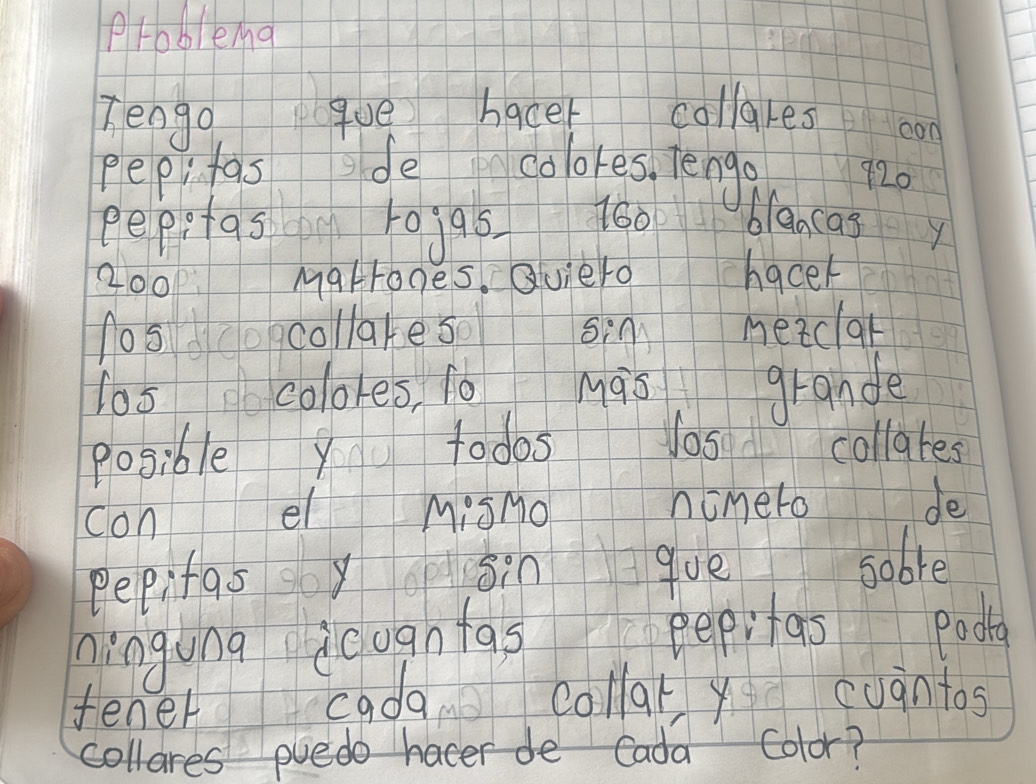 Problema
Tengo que hacer collares con
pepitas de colores. Tengo 120
pepitas rojas 160 blancas y
200 marrones. Quiero hacer
los collares sin mezclar
los colores, lo más grande
posible y todos los collares
con el mismo número de
pepitas y sin que sobre
ninguna ¿cuantas pepitas podra
tener cada collar, y cuántos
collares puedo hacer de cada color?